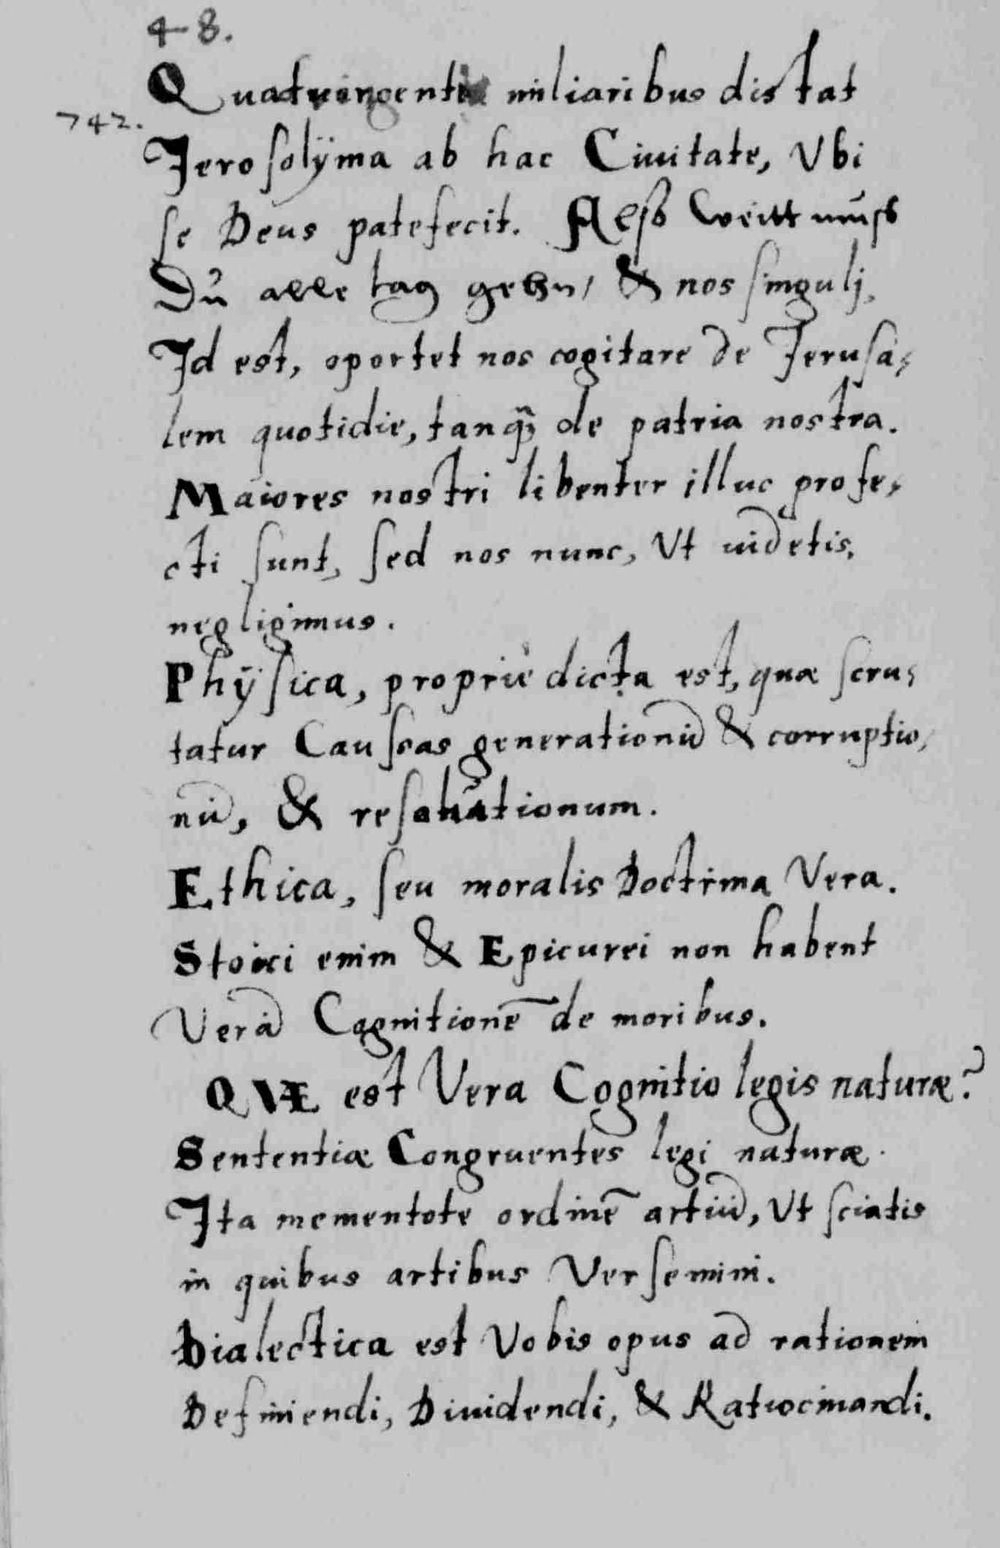 48.
Quatuingentis miliaribus distat
742.
Jerosolÿma ab hac Ciuitate, Vbi
se Deus patefecit. Alsb weitt mußb
Du alle tag gehn, & nos singulj.
Id est, oportet nos cogitare de Jerusa,
lem quotidie, tanq̃ȝ de patria nostra.
Maiores nostri libenter illuc profe,
cti sunt, sed nos nunc, Vt uidetis,
negligimus.
Phÿsica, propriè dicta est, quæ scru,
tatur Caussas generationũ & corruptio,
nũ, & resolutionum.
Ethica, seu moralis Doctrina Vera.
Stoici enim & Epicurei non habent
Verã Cognitionẽ de moribus.
QVÆ est Vera Cognitio legis naturæ?
Sententiæ Congruentes legi naturæ.
Ita mementote ordinẽ artiũ, Vt sciatis
in quibus artibus Versemini.
Dialectica est Vobis opus ad rationem
Definiendi, Diuidendi, & Ratiocinandi.